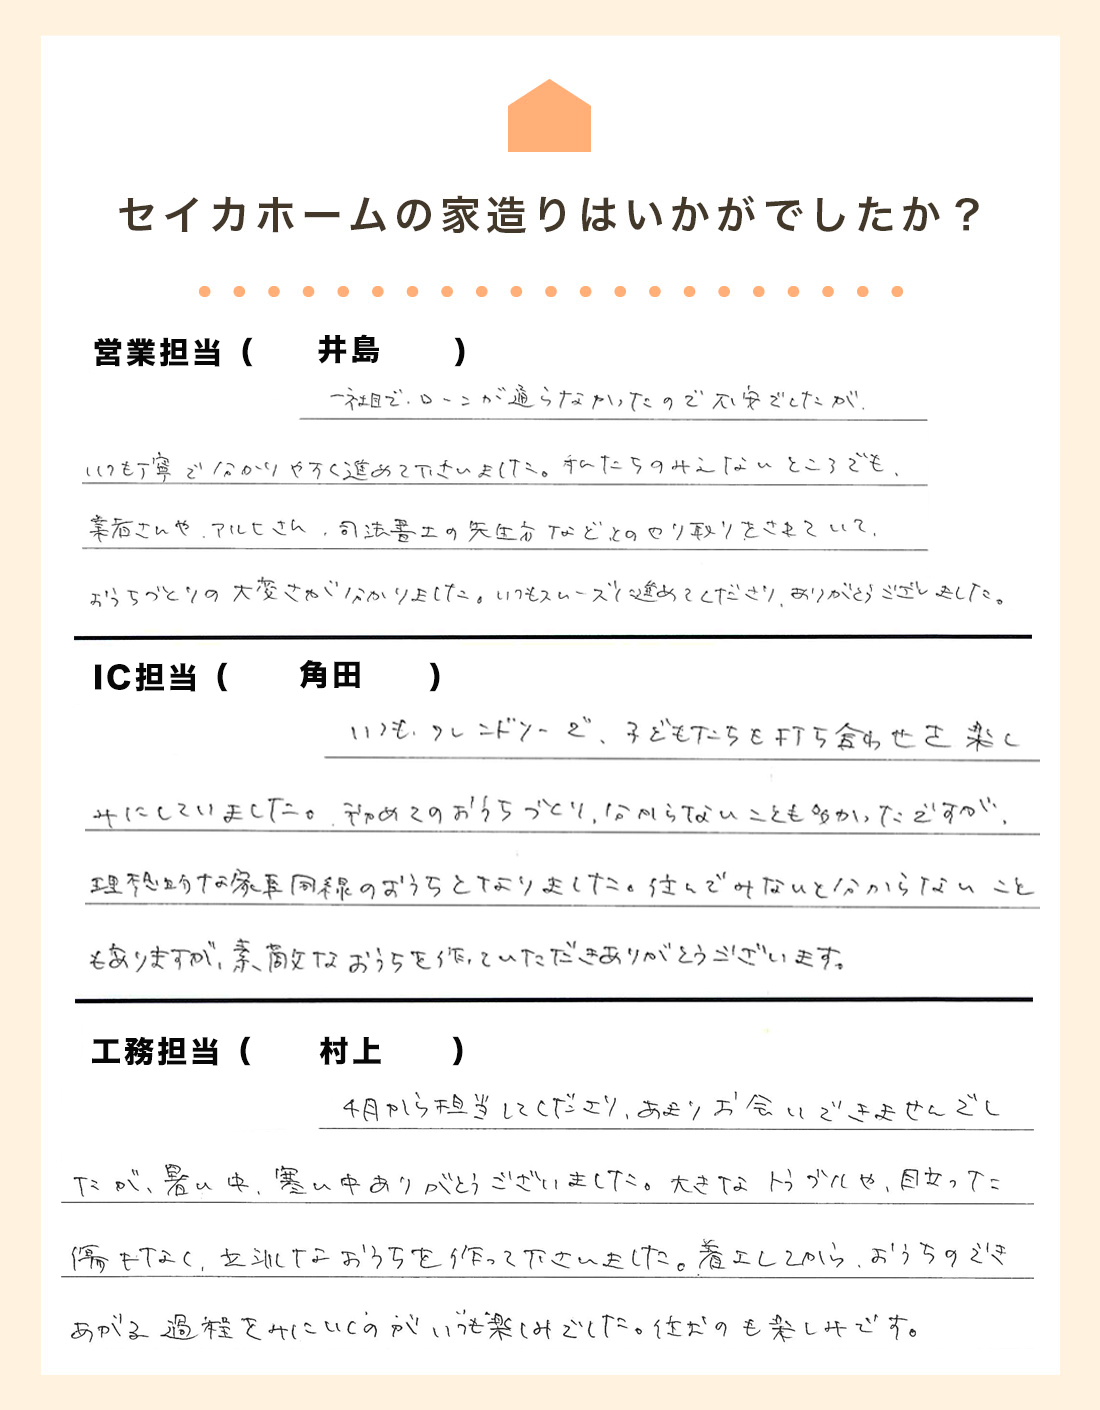 セイカホームの家造りはいかがでしたか？
営業担当（ 井島 ）
一社目で、ローンが通らなかったので不安でしたが、
いつも丁寧で分かりやすく進めて下さいました。私たちのみえないところでも、
業者さんや、アルヒさん、司法書士の先生方などとのやり取りをされていて、
おうちづくりの大変さが分かりました。いつもスムーズに進めてくださり、ありがとうございました。
IC担当（ 角田 ）
いつも、フレンドリーで、子どもたちも打ち合わせを楽し
みにしていました。初めてのおうちづくり、分からないことも多かったですが、
理想的な家事同線のおうちとなりました。住んでみないと分からないこと
もありますが、素敵なおうちを作っていただきありがとうございます。
工務担当（ 村上 ）
4月から担当してくださり、あまりお会いできませんでし
たが、暑い中、寒い中ありがとうございました。大きなトラブルや、目立った
傷もなく、立派なおうちを作って下さいました。着工してから、おうちのでき
あがる過程をみにいくのがいつも楽しみでした。住むのも楽しみです。